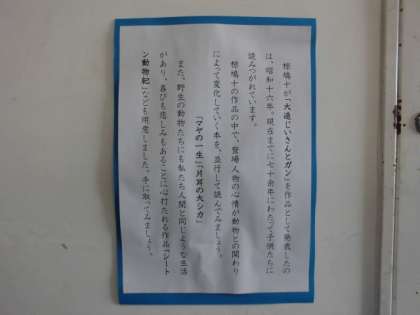 椋鳩十が「大造じいさんとガン」を作品として発表したの
は、昭和十六年。現在までに七十余年にわたって子供たちに
読みつがれています。
椋鳩十の作品の中で、登場人物の心情が動物との関わり
によって変化していく本を、並行して読んでみましょう。
「マヤの一生」「片耳の大シカ」
また、野生の動物たちにも私たち人間と同じような生活
があり、喜びも悲しみもあることに心打たれる作品「シート
ン動物記」なども用意しました。手に取ってみましょう。